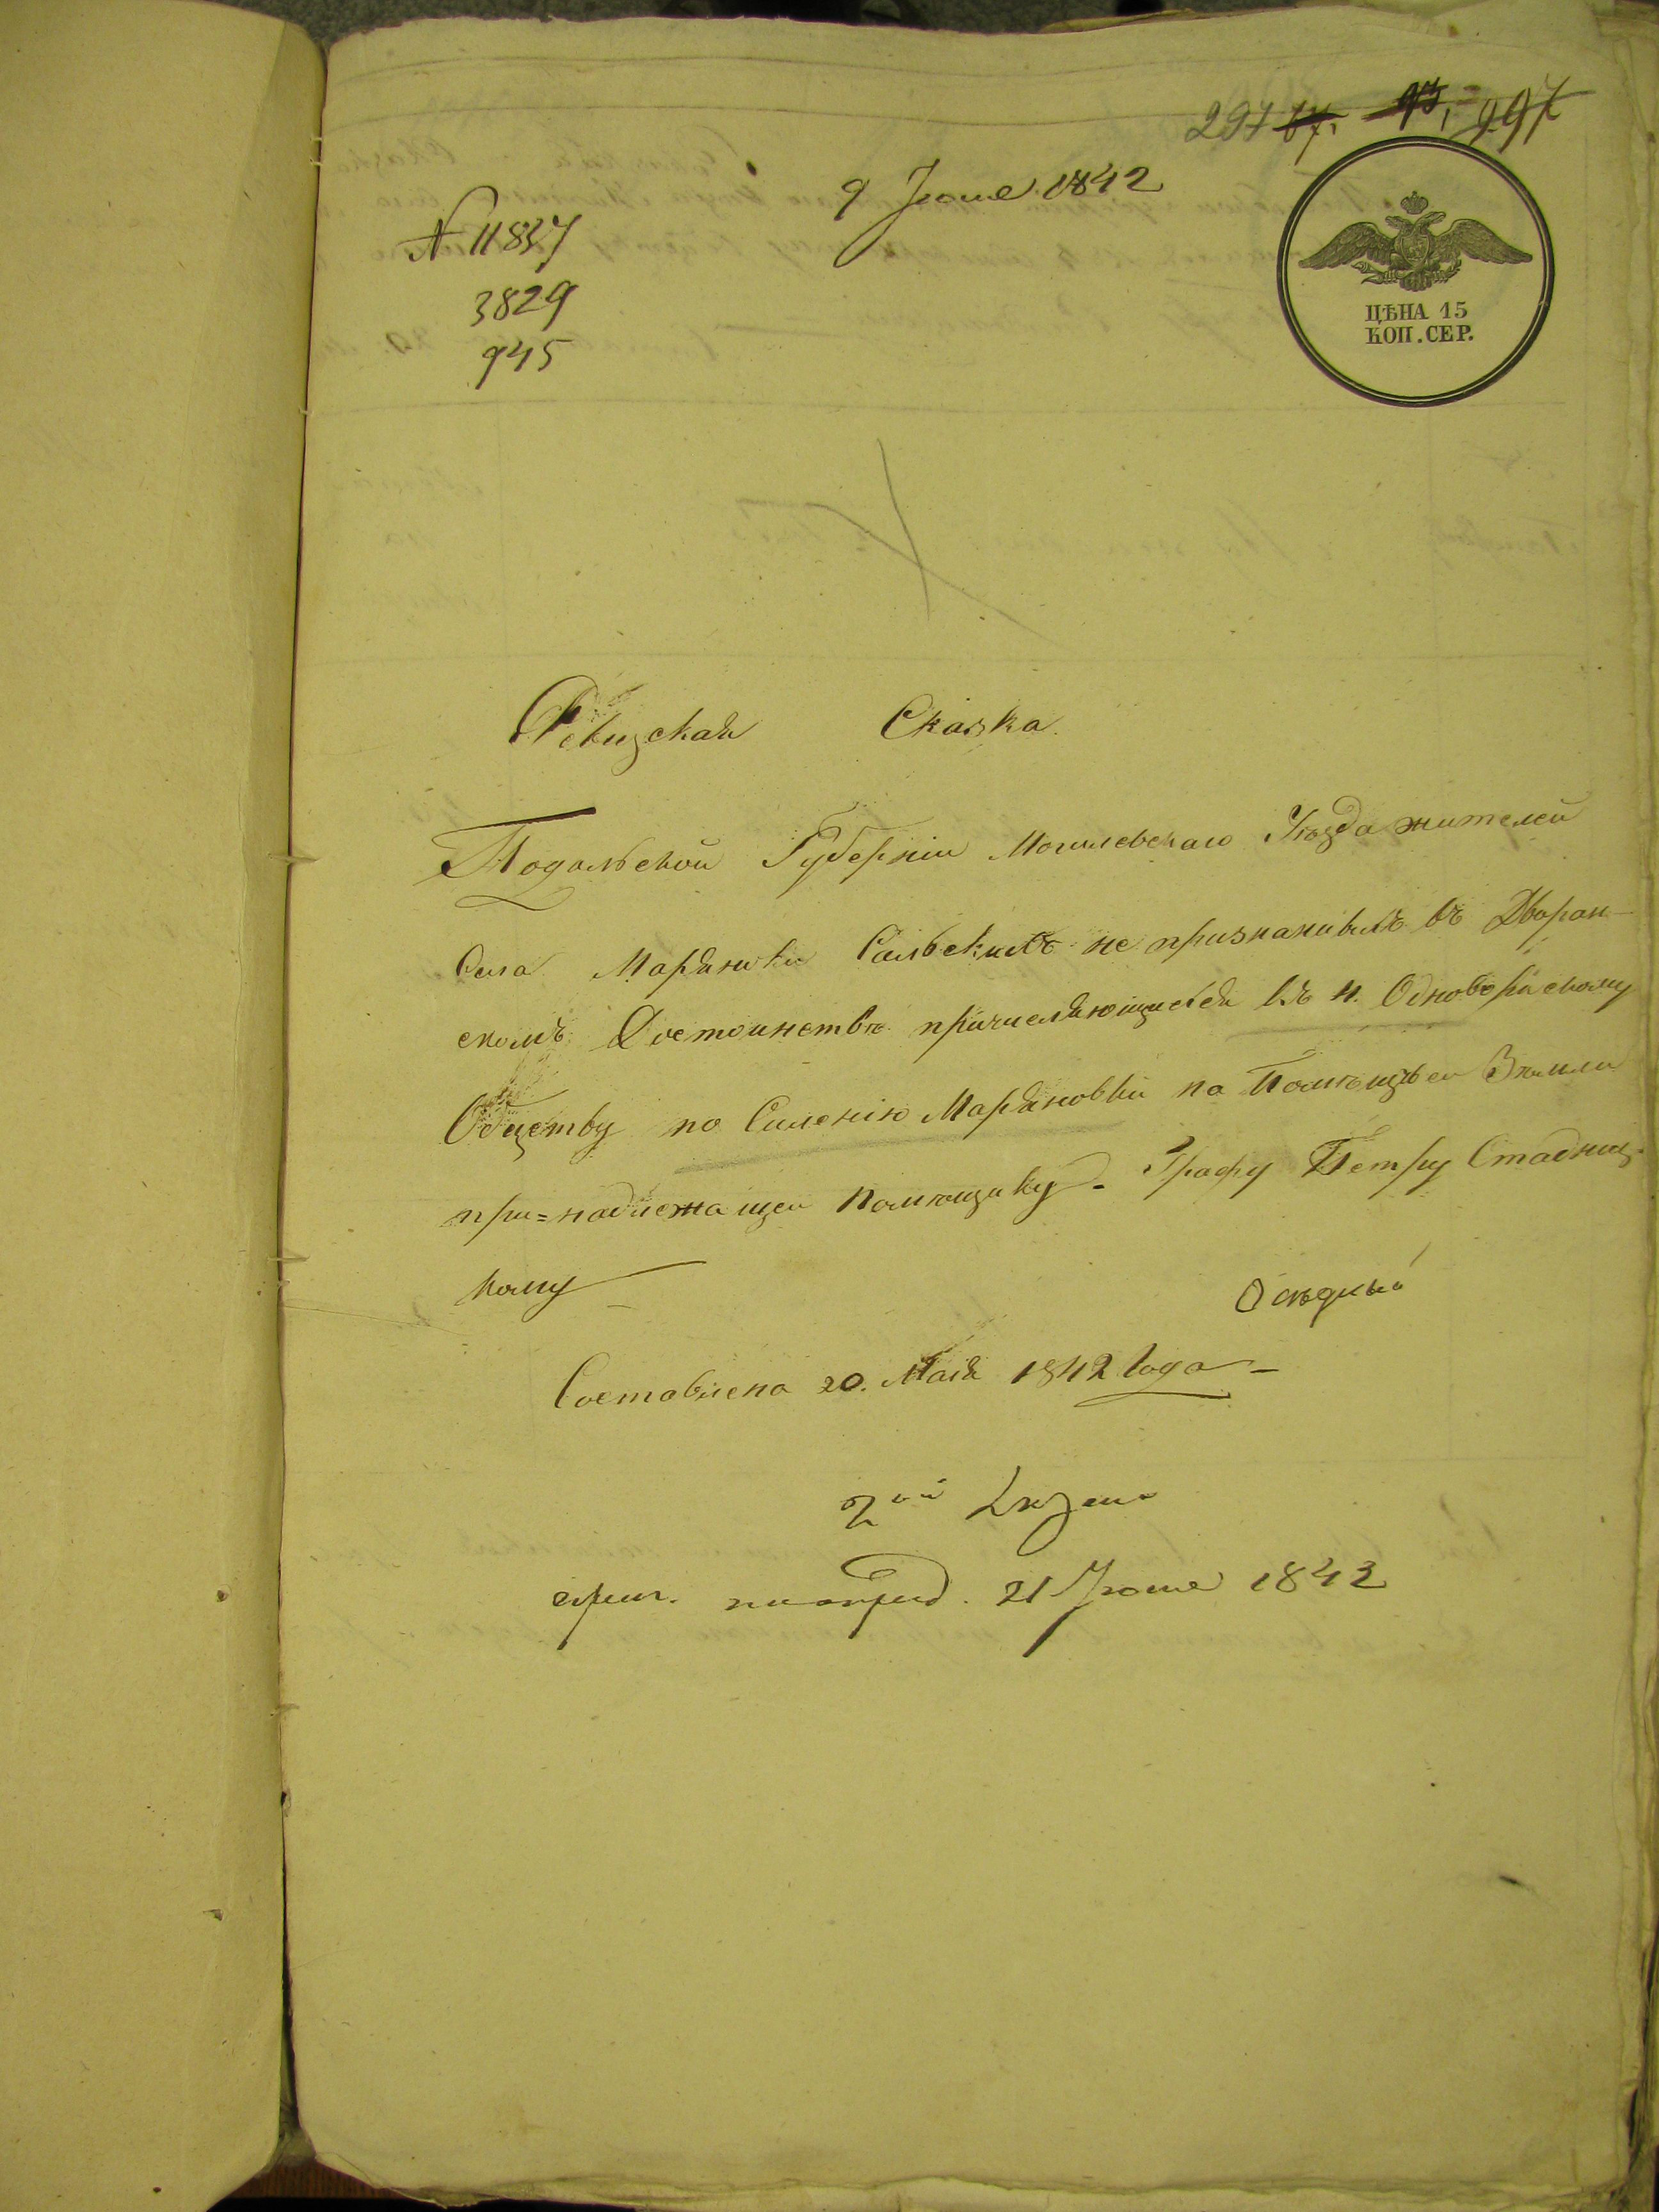 297 17. 93. 297
9 Іюня 1842
ЦѢНА 15
КОП. СЕР.
N 11837
3829
945
Ревизская Сказка.
Подольской Губерніи Могилевскаго Уѣзда жителей
Села Марянивки Сальскихъ не признанныхъ въ Дворян-
скомъ Достоинствѣ причисляющихся къ
Обществу по Селенію Маряновки на Помѣщьей Земли
при=надлежащей Помѣщику Графу Петру Стадниц-
кому
Осѣдлый
Составлена 20. Мая 1842 Года
2ой
21 Іюня 1842